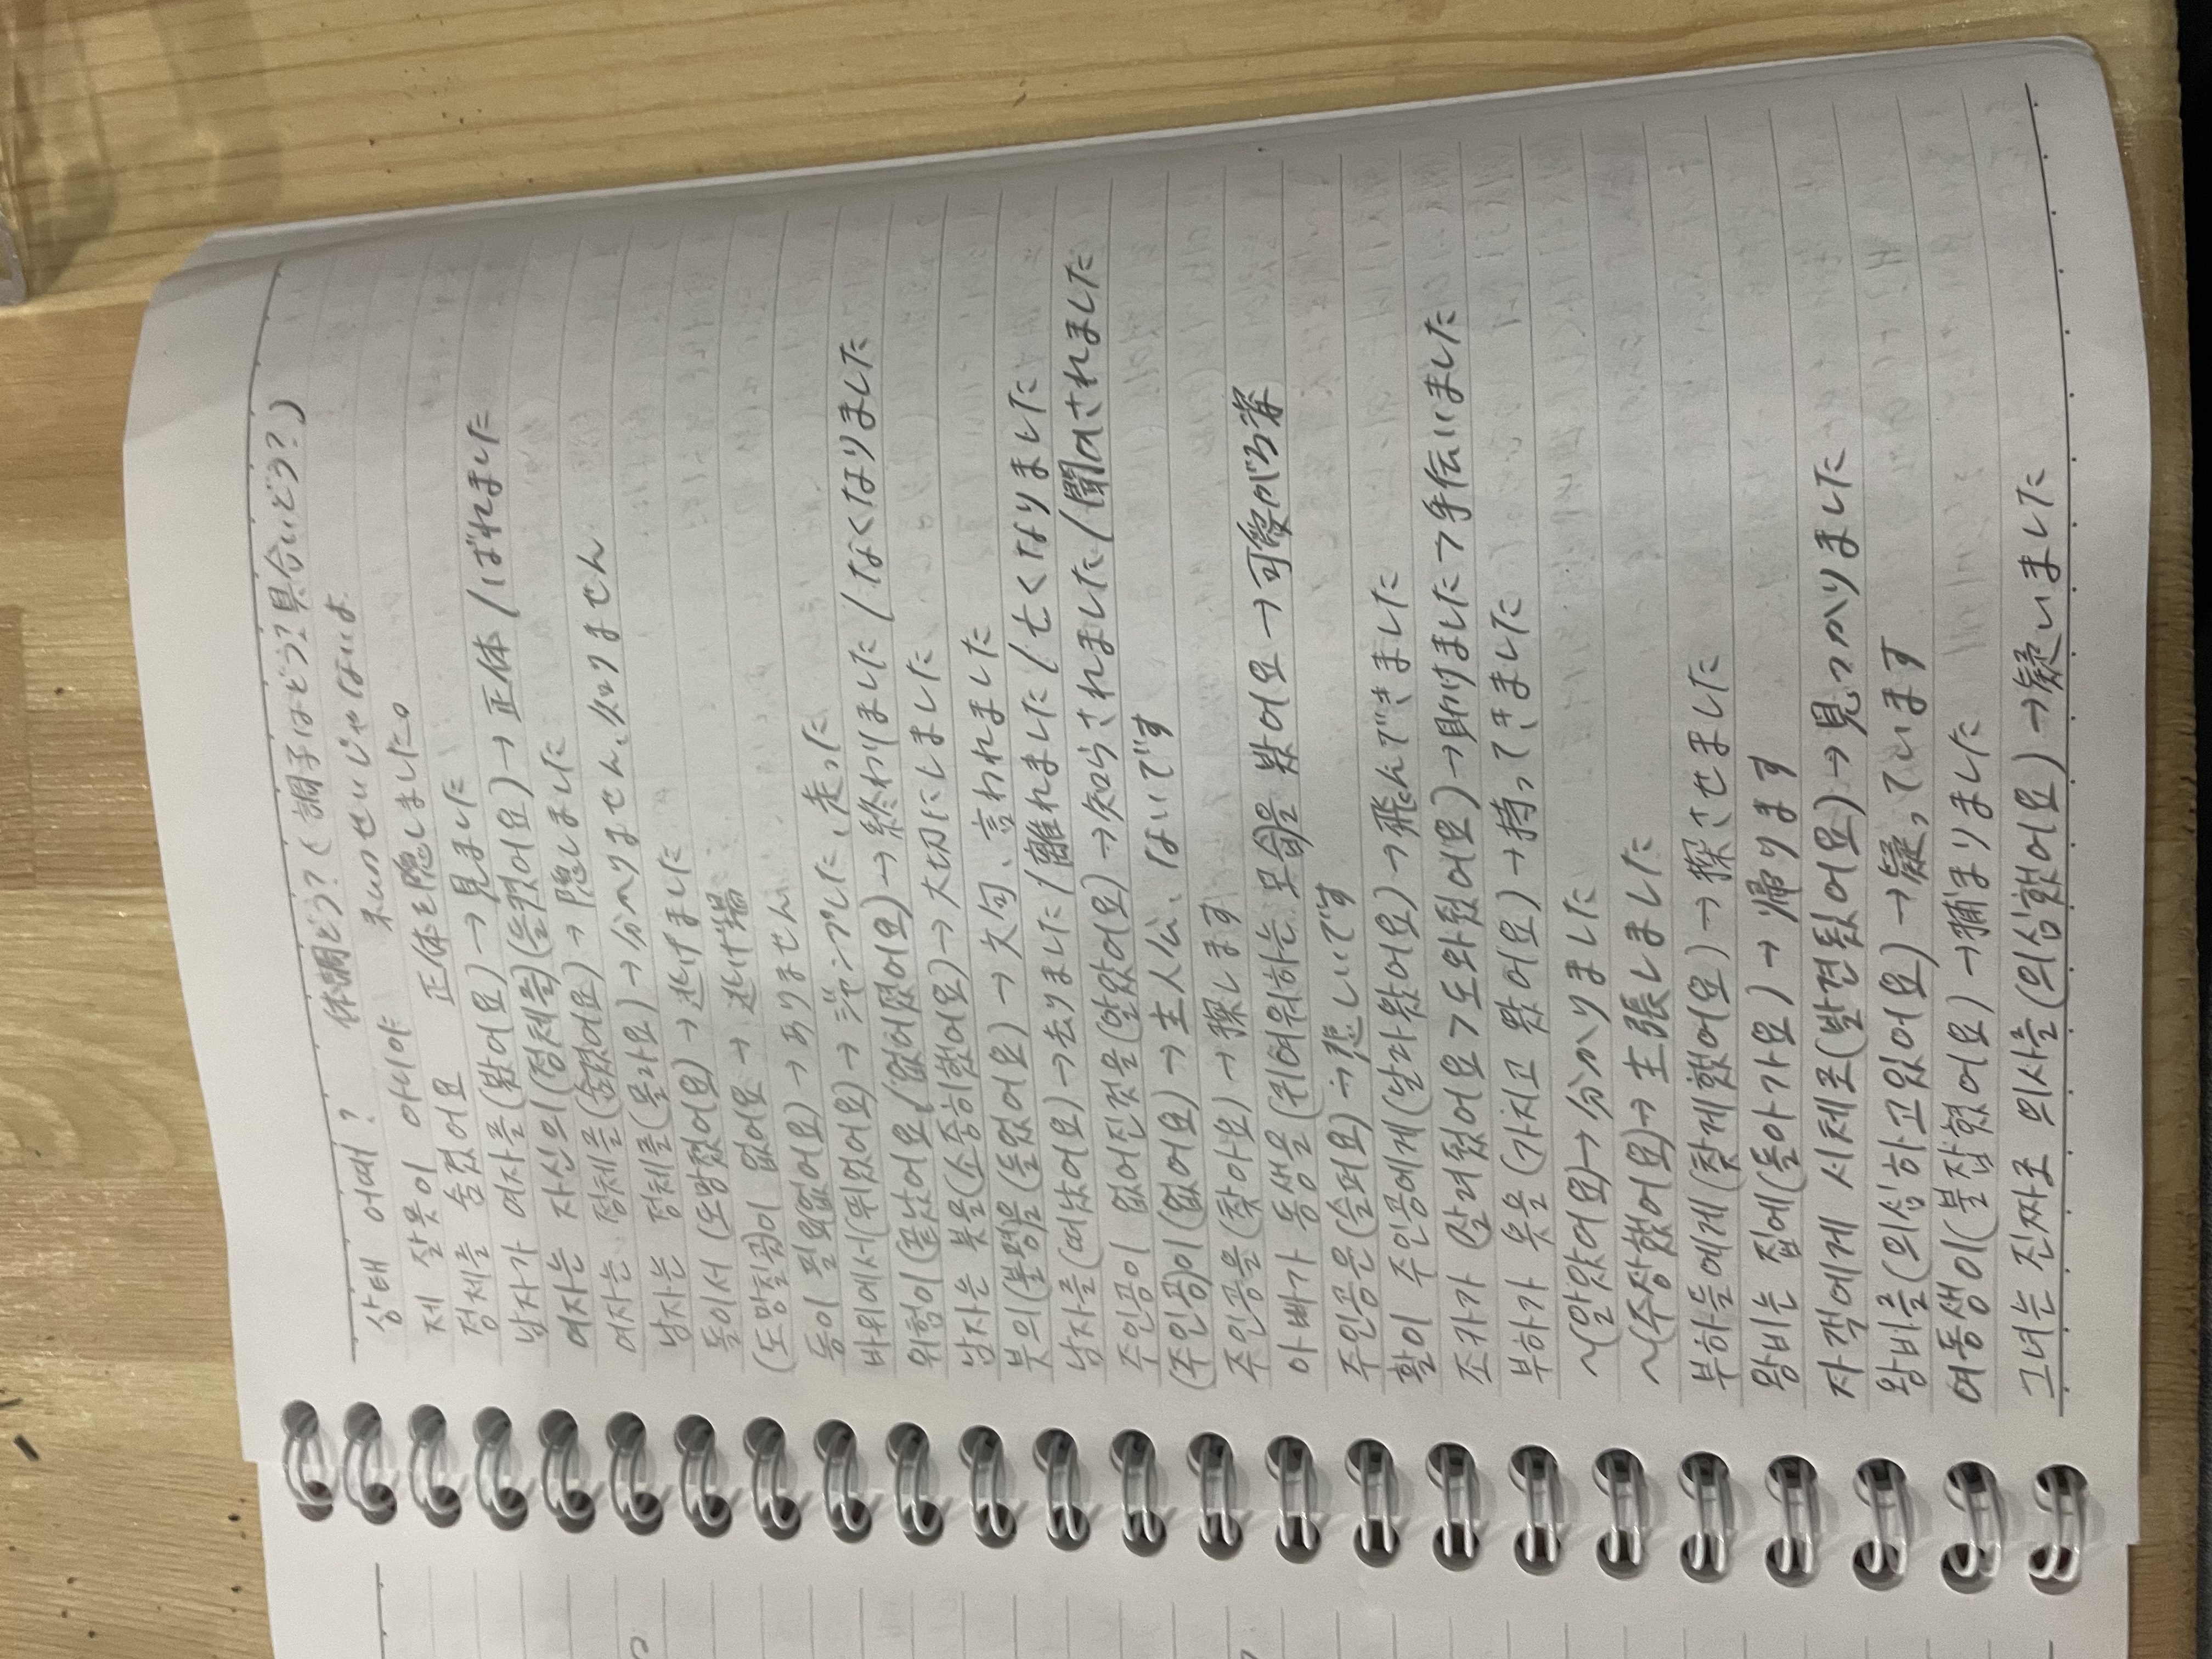 상태 어때? 体調どう?(調子はどう?具合いどう?)
제 잘못이 아니야 まいのせいじゃないよ
정체를 숨겼어요 正体を隠しました。
남자가 여자를(봤어요)→見ました
여자는 자신의(정체를)(들켰어요)→正体/ばれました
여자는 정체를(숨겼어요)→隠しました
남자는 정체를(몰라요)→分かりません、知りません
둘이서(도망쳤어요)→逃げました
(도망칠곳)이 없어요→逃げ場
돈이 필요없어요)→ありません
바위에서(뛰었어요)→ジャンプした、走った
위험이(끝났어요/없어졌어요)→終わりました/なくなりました
남자는 붓을(소중히했어요)→大切にしました
붓의(불평)을(들었어요)→文句、言われました
남자를(떠났어요)→去りました/離れました/亡くなりました
주인공이 없어진것을(알았어요)→知らされました/聞かされました
(주인공)이(없어요)→主人公、ないです
주인공을(찾아요)→探します
아빠가 동생을(귀여워하는 모습)을 봤어요→可愛がる姿
주인공은(슬퍼요)→悲しいです
활이 주인공에게(날라왔어요)→飛んできました
조카가(살려줬어요>도와줬어요)→助けました→手伝いました
부하가 옷을(가지고 왔어요)→持ってきました
~(알았어요)→分かりました
~(주장했어요)→主張しました
부하들에게(찾게했어요)→探させました
왕비는 집에(돌아가요)→帰ります
자객에게 시체로(발견됐어요)→見つかりました
왕비를(의심하고있어요)→疑っています
여동생이(붙잡혔어요)→捕まりました
그녀는 진짜로 의사를(의심했어요)→疑いました